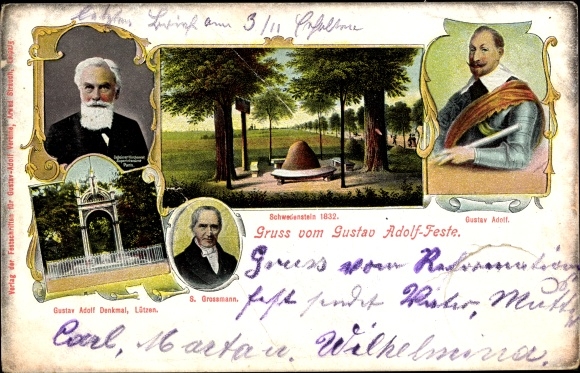 letzten Brief am 3/11 Erhalten
Verlag der Festschriften für Gustav-Adolf Vereine, Arwed Strauch, Leipzig
Schwedenstein 1832.
Gustav Adolf.
Gruss vom Gustav Adolf-Feste.
Gustav Adolf Denkmal, Lützen.
G. Grossmann.
Gruss vom Reformations
fest sendet Vater, Mutter
Carl, Martan. Wilhelmina.